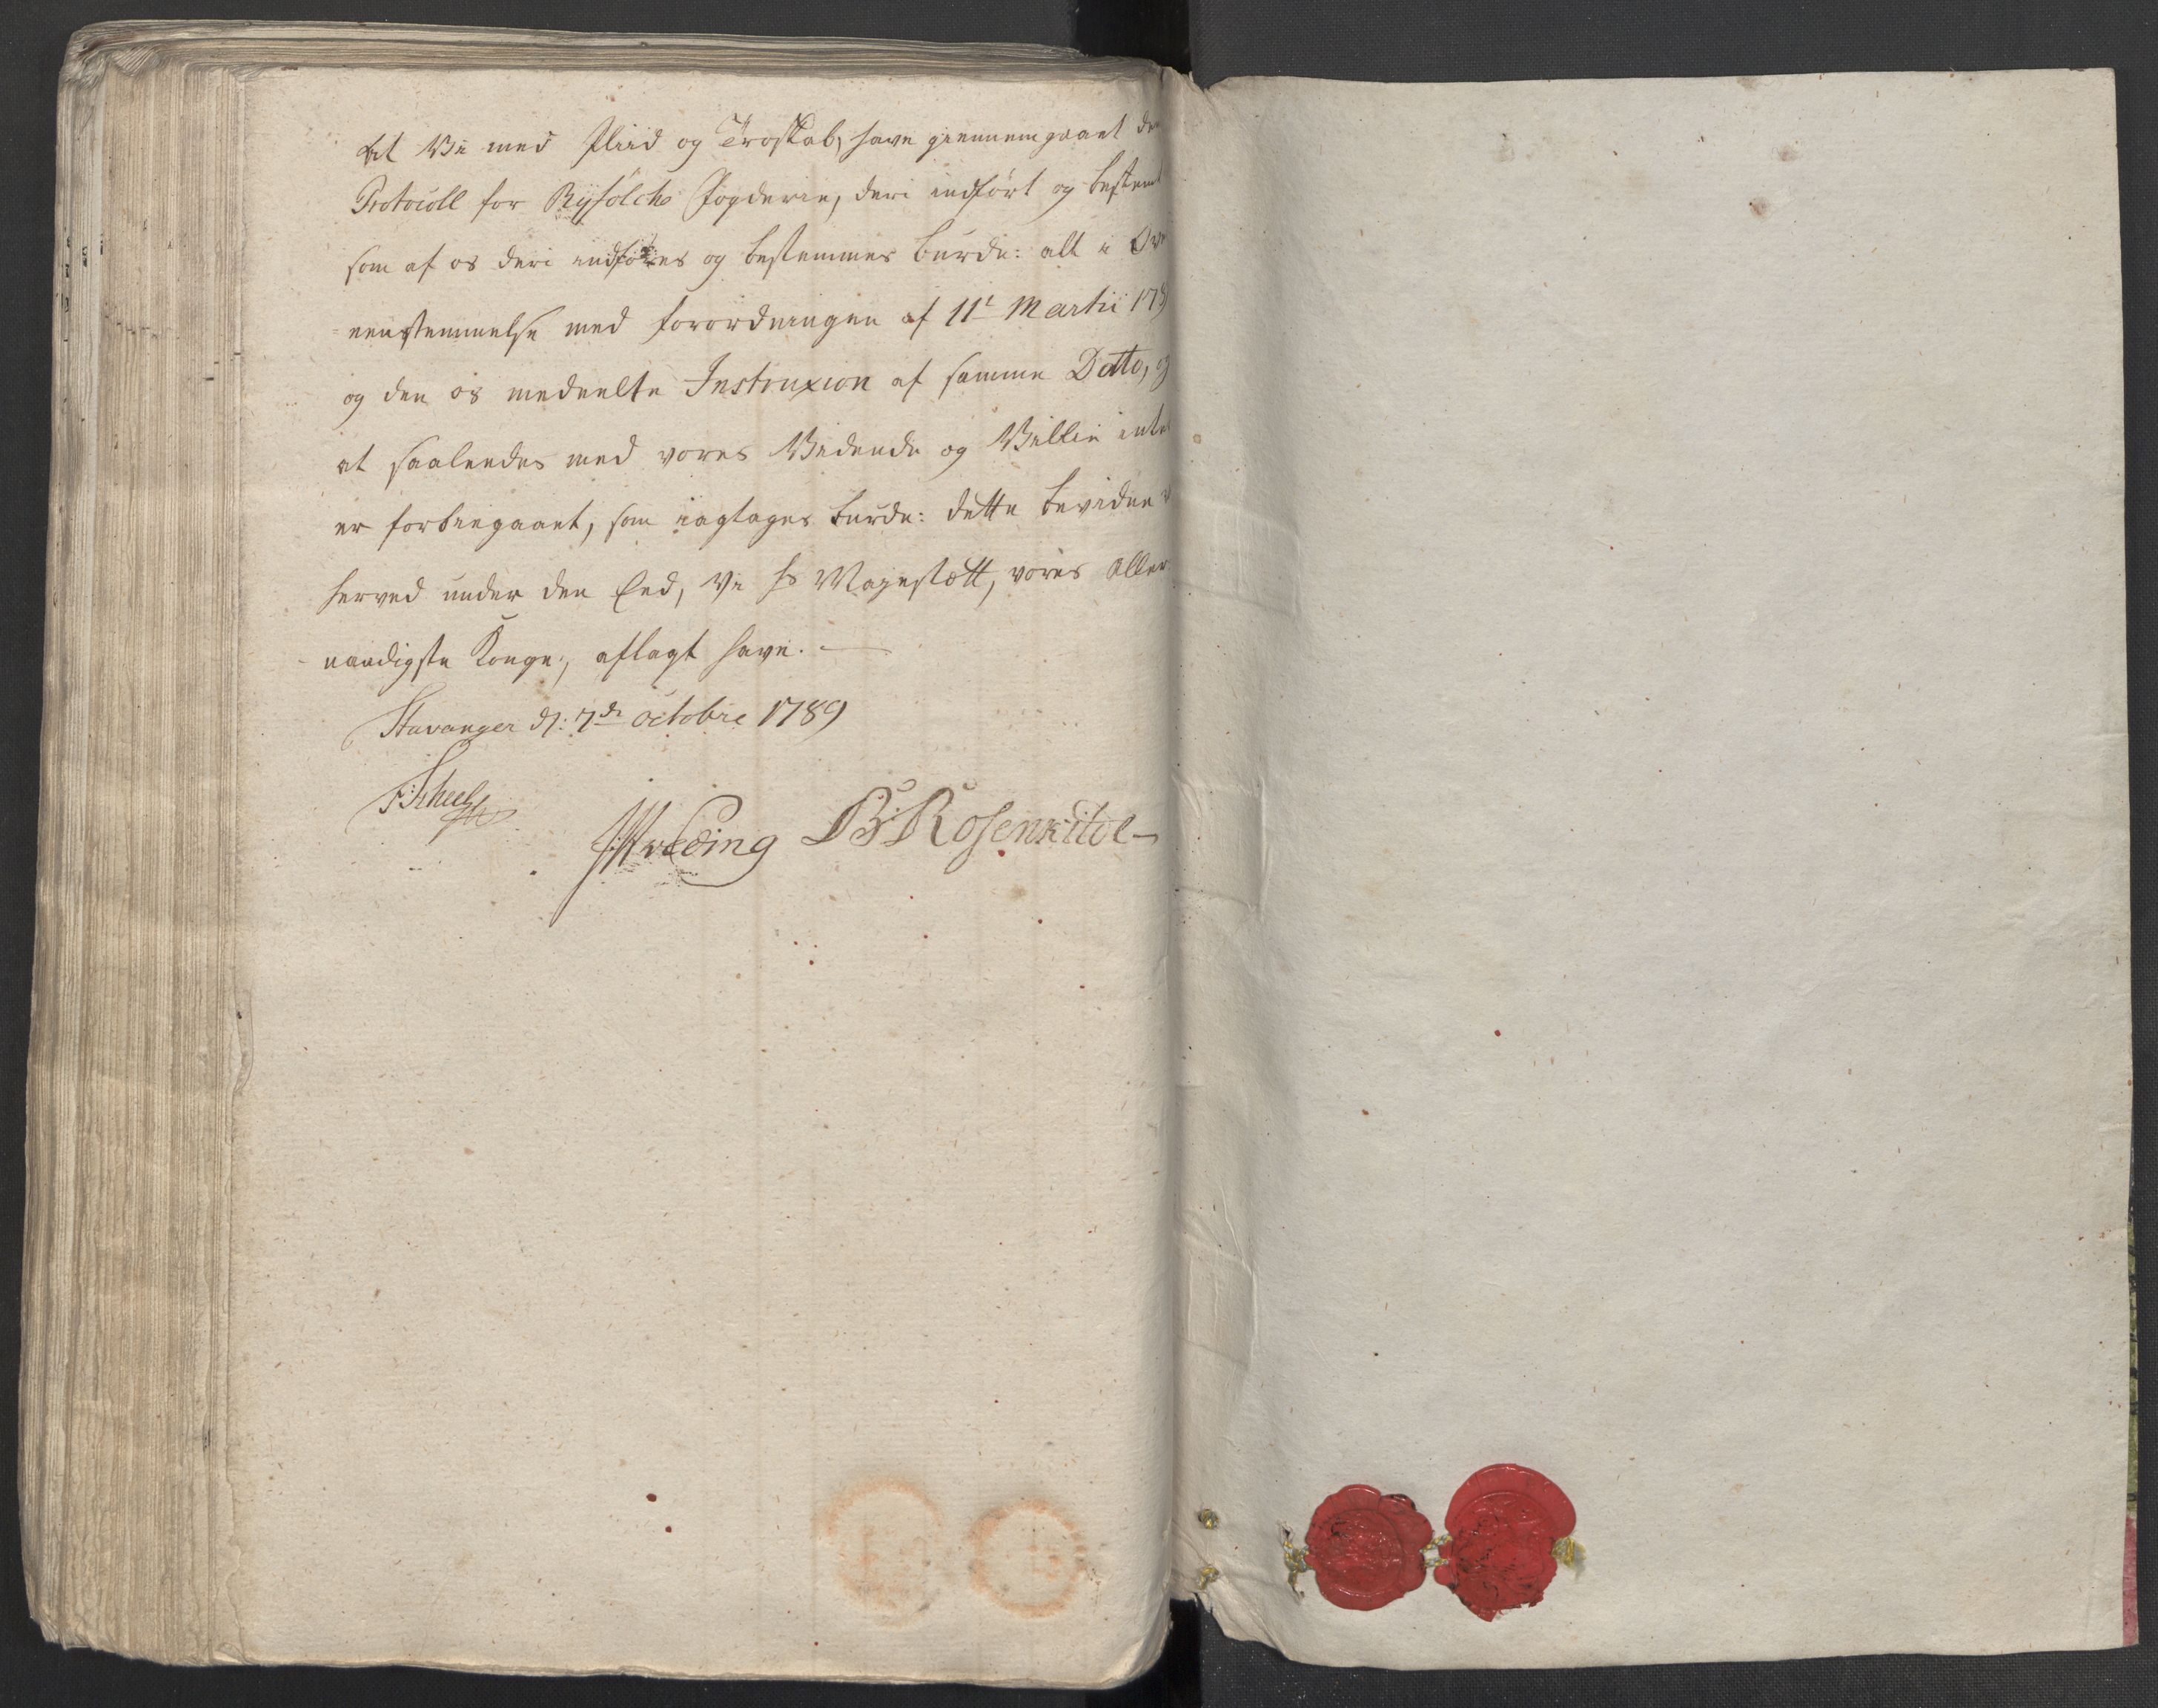 At Vi med Fliid og Troskab, have giennemgaaet den
Protocoll for Ryfölche Fogderie, deri indfört og bestemt
som af os deri indföres og bestemmes burde: alt i Ove
eenstemmelse med forordningen af 11t Martii 178
og den os meddeelte Instruxion af samme Datto, og
at saaleedes med vores Vidende og Villie intet
er forbiegaaet, som iagtages burde: dette bevidne v
herved under den Eed, Vi hs Mayestætt, vores Aller
naadigste Konge, aflagt have. —
Stavanger d: 7de Octobre 1789
FScheel
Hveding B:Rosenkilde —